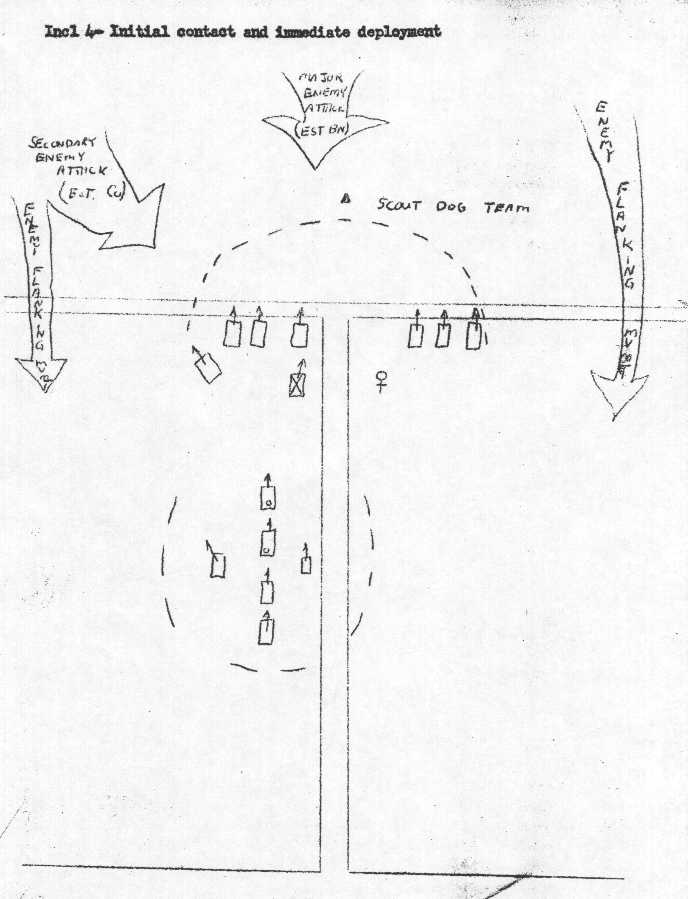 Incl 4- Initial contact and immediate deployment
MAJOR
ENEMY
ATTACK
(EST BN)
SECONDARY
ENEMY
ATTACK
(EST. Co)
SCOUT DOG TEAM
ENEMY FLANKING MVMT
ENEMY FLANKING MVMT